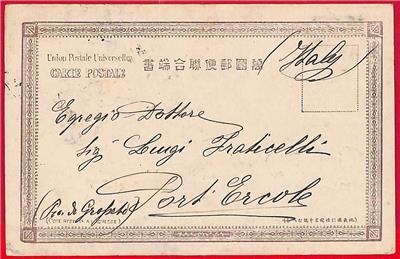 (Italy)
Union Postale Universelle.
CARTE POSTALE
萬國郵便聯合端書
Egregio Dottore
Sig Luigi Fraticelli
Port'Ercole
(Prov. di Grosseto)
(CÔTÉ RÉSERVÉ A L'ADRESSE)